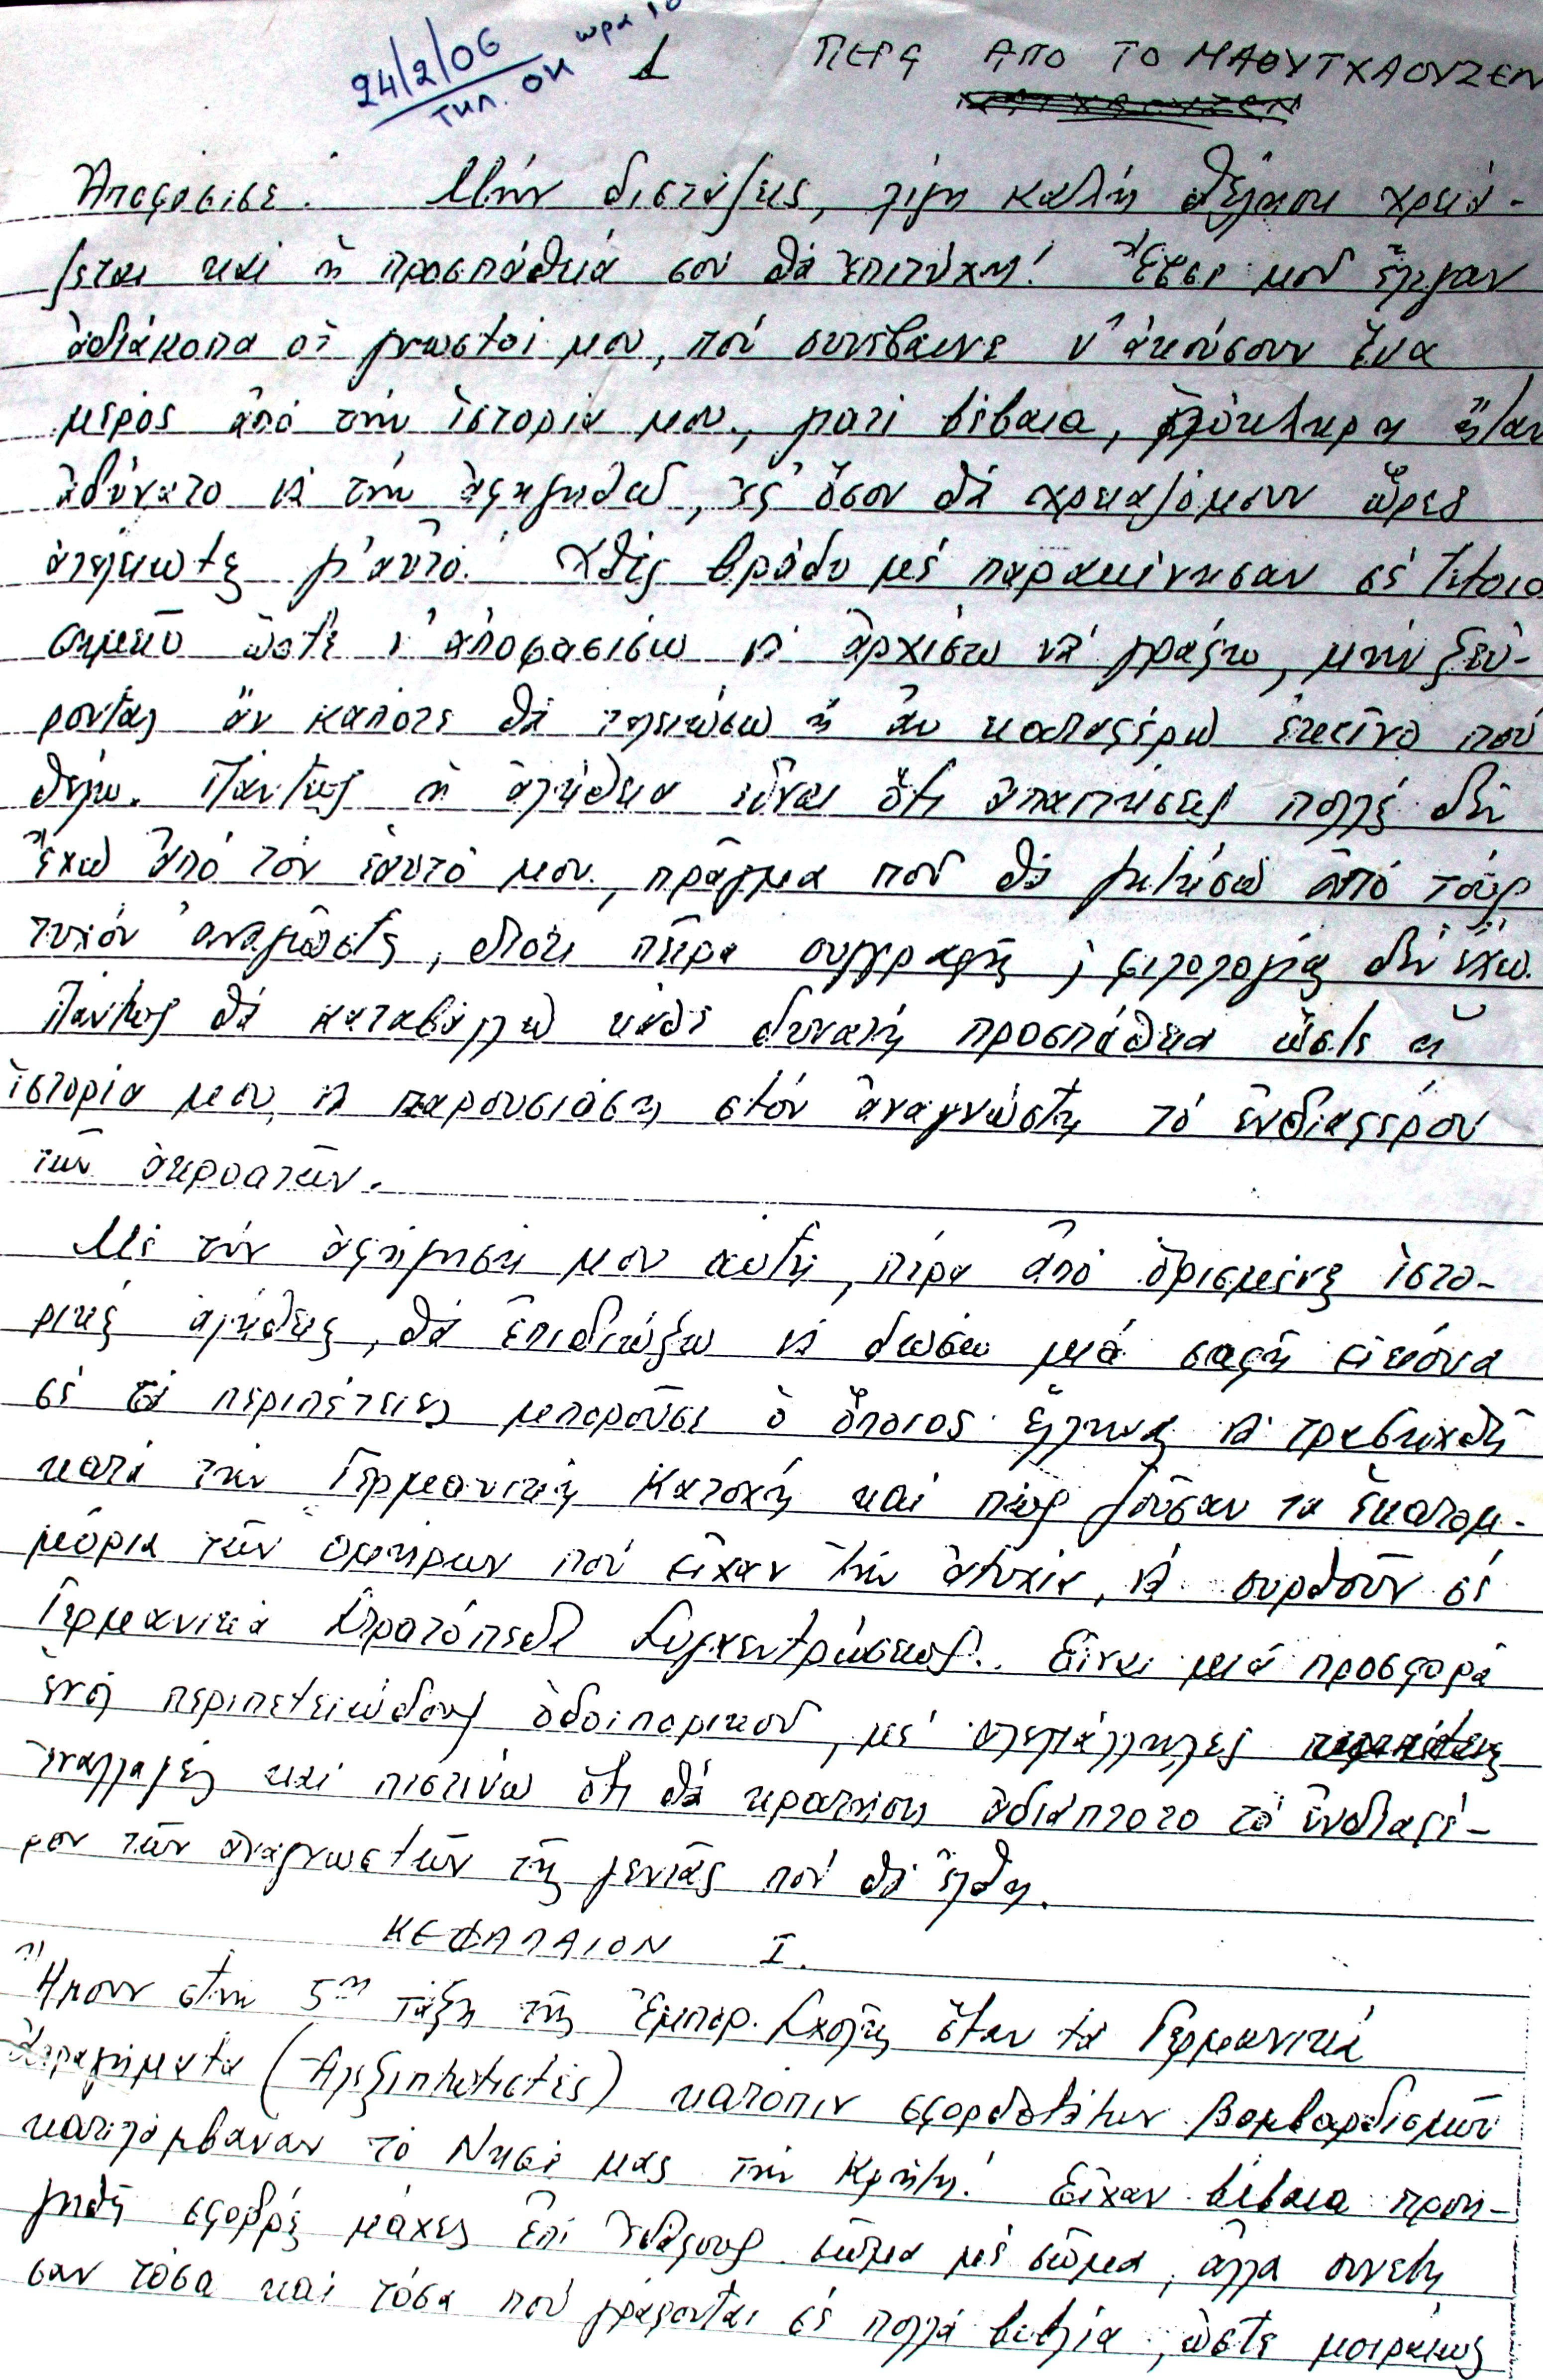 24/2/06
τηλ. ΟΚ ώρα 10
1 ΠΕΡΑ ΑΠΟ ΤΟ ΜΑΟΥΤΧΑΟΥΖΕΝ
Ἀποφάσισε. Μήν διστάζεις, λίγη καλή θέληση χρειά-
ζεται καί ἡ προσπάθειά σου θά ἐπιτύχη! Ἔτσι μοῦ ἔλεγαν
ἀδιάκοπα οἱ γνωστοί μου, πού συνέβαινε ν' ἀκούσουν ἕνα
μέρος ἀπό τήν ἱστορία μου, γιατί βέβαια, ὁλόκληρη ἦταν
ἀδύνατο νά τήν ἀφηγηθῶ, ἐφ' ὅσον θά χρειαζόμουν ὧρες
ἀτελείωτες γι' αὐτό. Χθές βράδυ μέ παρακίνησαν σέ τέτοιο
σημεῖο ὥστε ν' ἀποφασίσω νά ἀρχίσω νά γράφω, μήν ξεύ-
ροντας ἄν κάποτε θά τελειώσω ἤ ἄν καταφέρω ἐκεῖνο πού
θέλω. Πάντως ἡ ἀλήθεια εἶναι ὅτι ἀπαιτήσεις πολλές δέν
ἔχω ἀπό τόν ἑαυτό μου, πρᾶγμα πού θά ζητήσω ἀπό τούς
τυχόν ἀναγνῶστες, διότι πεῖρα συγγραφῆς ἤ φιλολογίας δέν ἔχω.
Πάντως θά καταβάλλω κάθε δυνατή προσπάθεια ὥστε ἡ
ἱστορία μου, νά παρουσιάση στόν ἀναγνώστη τό ἐνδιαφέρον
τῶν ἀκροατῶν.
Μέ τήν ἀφήγησή μου αὐτή, πέρα ἀπό ὁρισμένες ἱστο-
ρικές ἀλήθειες, θά ἐπιδιώξω νά δώσω μιά σαφῆ εἰκόνα
σέ τί περιπέτειες μποροῦσε ὁ ὅποιος ἕλληνας νά τραβηχθῆ
κατά τήν Γερμανική Κατοχή καί πῶς ζοῦσαν τά ἑκατομ-
μύρια τῶν ὁμήρων πού εἶχαν τήν ἀτυχία, νά συρθοῦν σέ
Γερμανικά Στρατόπεδα Συγκεντρώσεως. Εἶναι μιά προσφορά
ἑνός περιπετειώδους ὁδοιπορικοῦ, μέ ἀλεπάλληλες
ἐναλλαγές καί πιστεύω ὅτι θά κρατήση ἀδιάπτοτο τό ἐνδιαφέ-
ρον τῶν ἀναγνωστῶν τῆς γενιᾶς πού θά ἔλθη.
ΚΕΦΑΛΑΙΟΝ I.
Ἤμουν στήν 5η τάξη τῆς Ἐμπορ. Σχολῆς ὅταν τά Γερμανικά
Στρατεύματα (Ἀλεξιπτωτιστές) κατόπιν σφοδροτάτων βομβαρδισμῶν
κατελάμβαναν τό Νησί μας τήν Κρήτη! Εἶχαν βέβαια προη-
γηθῆ σφοδρές μάχες ἐπί ἐδάφους σῶμα μέ σῶμα, ἀλλά συνέβη
σαν τόσα καί τόσα πού γράφονται σέ πολλά βιβλία, ὥστε μοιραίως